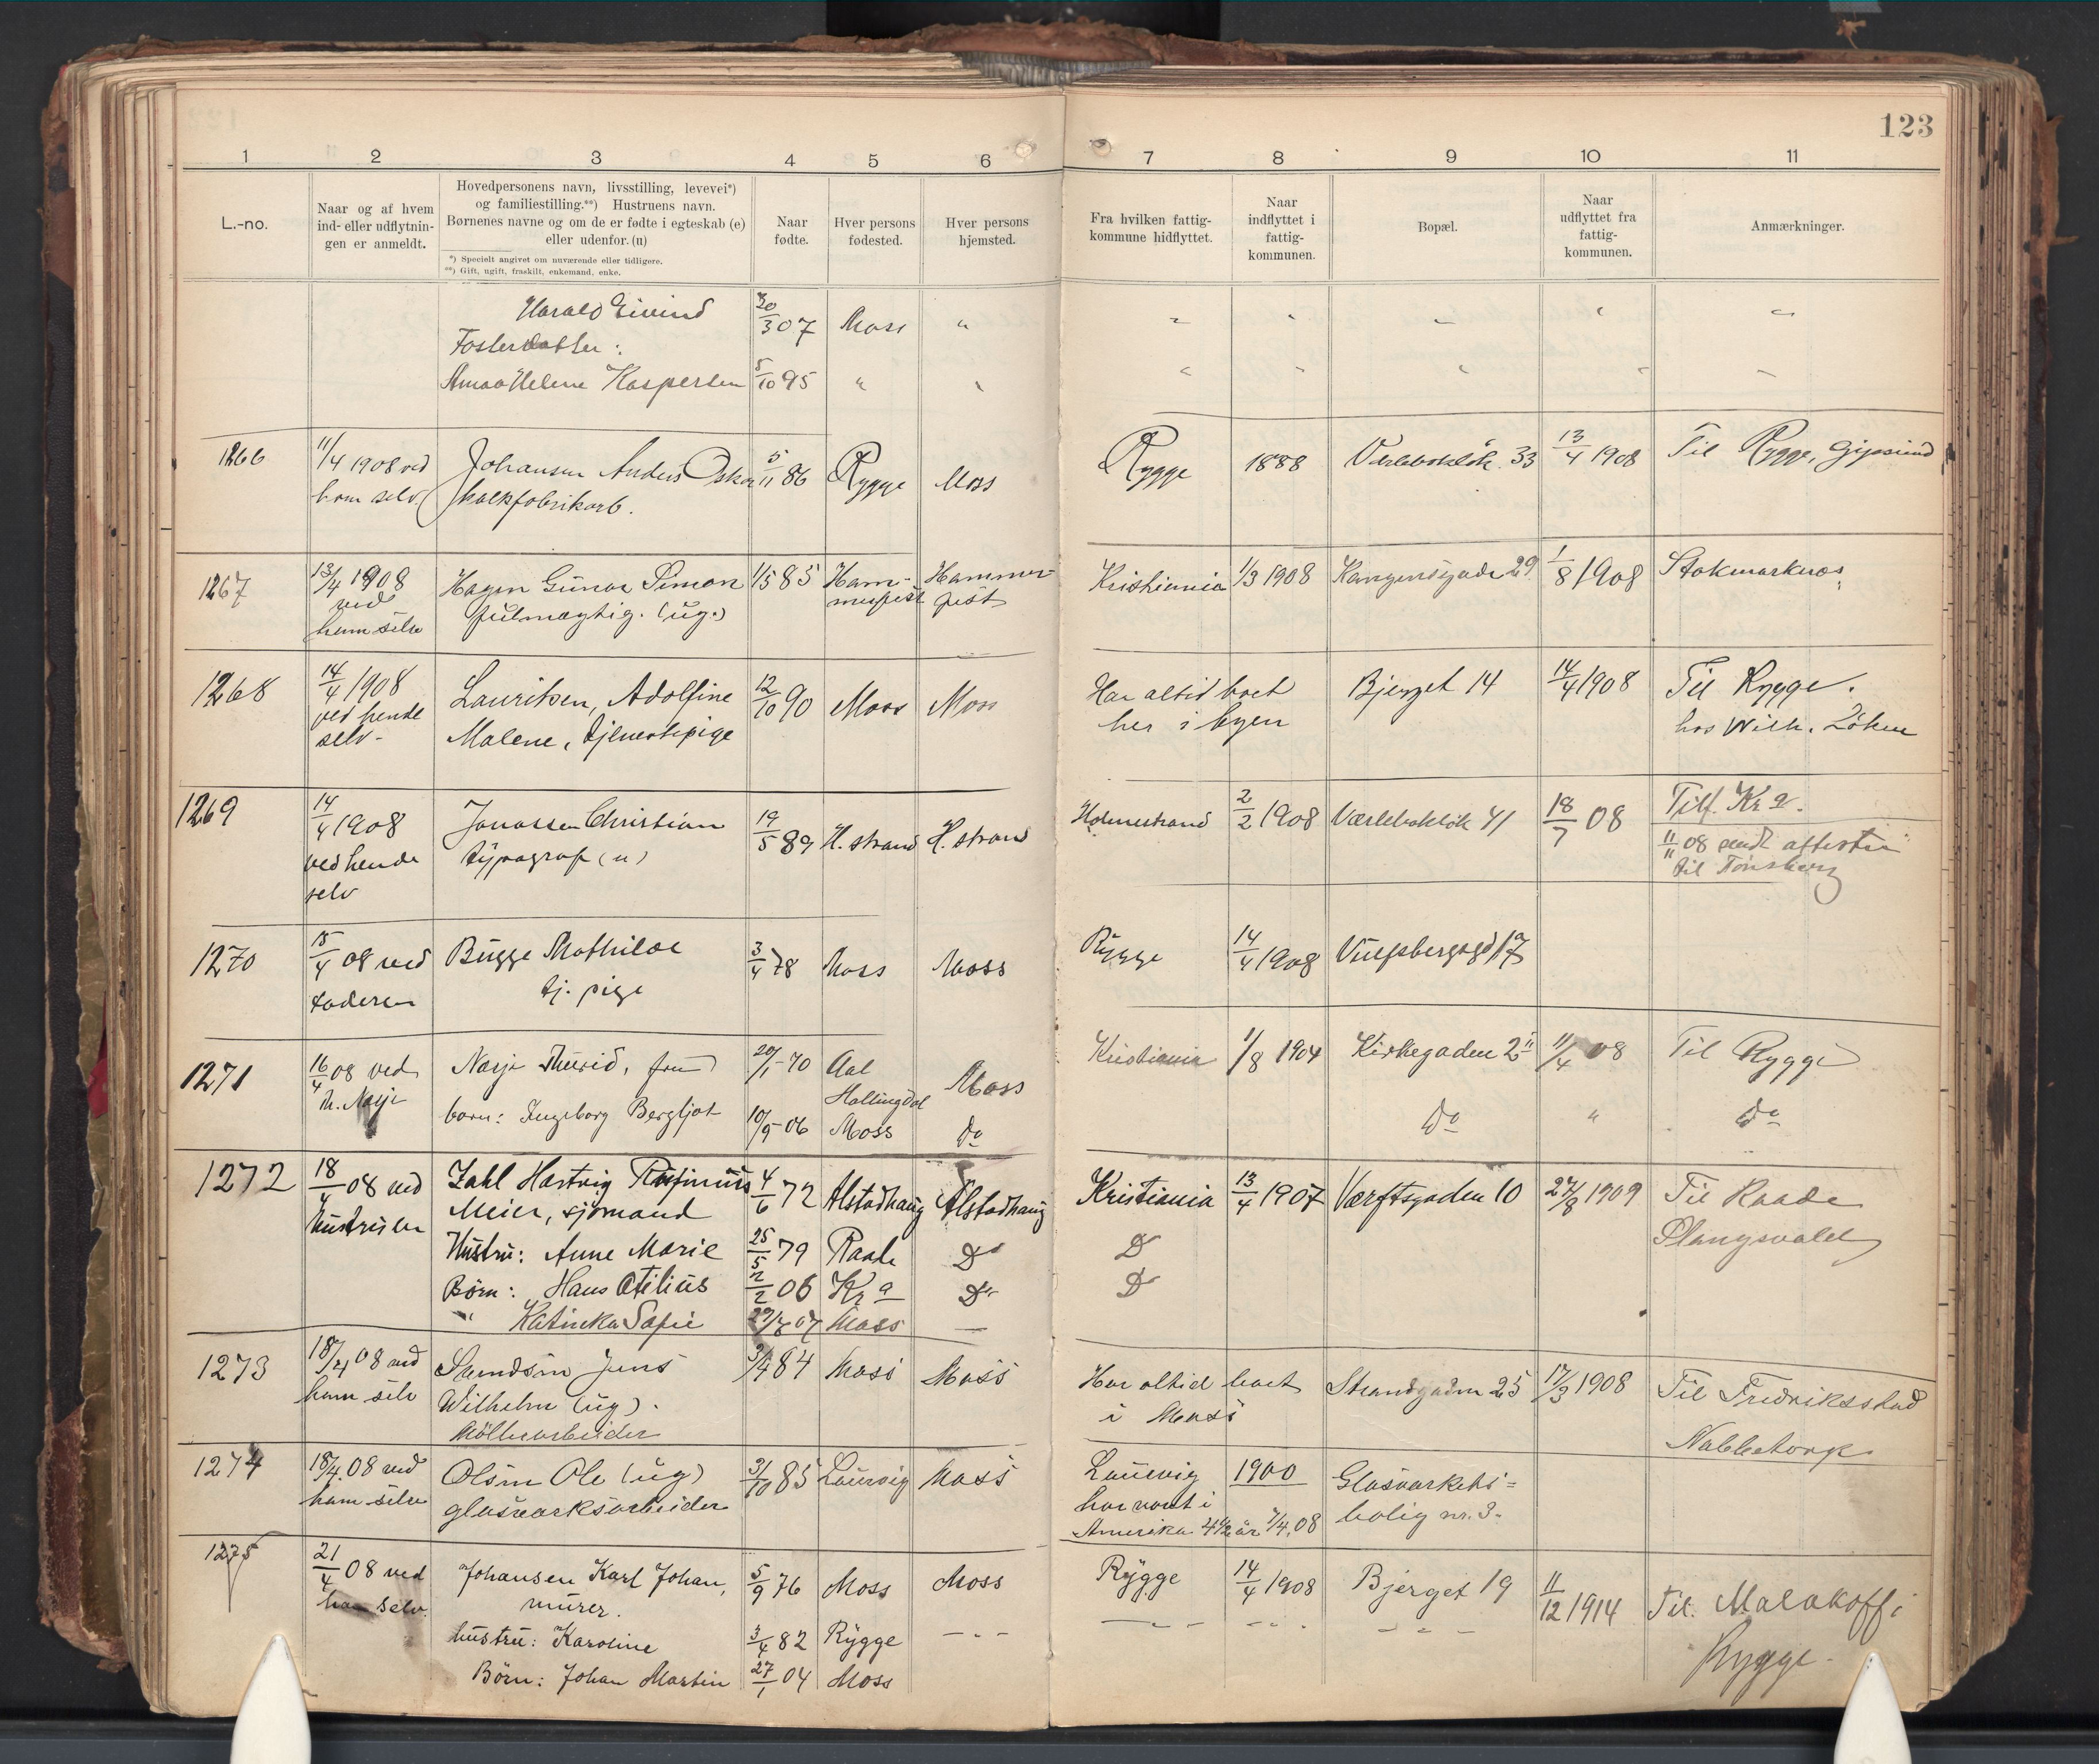 123
1 2 3 4 5 6 7 8 9 10 11
L.-no.
Naar og af hvem
ind- eller udflytnin-
gen er anmeldt.
Hovedpersonens navn, livsstilling, levevei*)
og familiestilling.**) Hustruens navn.
Børnenes navne og om de er fødte i egteskab (e)
eller udenfor. (u)
*) Specielt angivet om nuværende eller tidligere.
**) Gift, ugift, fraskilt, enkemand, enke.
Naar
fødte.
Hver persons
fødested.
Hver persons
hjemsted.
Fra hvilken fattig-
kommune hidflyttet.
Naar
indflyttet i
fattig-
kommunen.
Bopæl.
Naar
udflyttet fra
fattig-
kommunen.
Anmærkninger.
Harald Eivind 30/3 07 Moss "
Fosterdatter:
Helene Kaspersen 5/10 95 "
1266 11/4 1908 ved Johansen Anders Oskar 5/11 86 Rygge Moss Rygge 1888 33 13/4 1908 Til Rygge,
ham selv.
1267 13/4 1908 Hagen Simon 1/5 85 Ham- Hammer- Kristiania 1/3 1908 29 1/8 1908 Stokmarknes
ved fulmægtig. (ug.) merfest fest
ham selv
1268 14/4 1908 Lauritsen, Adolfine 12/10 90 Moss Moss Har altid boet Bjerget 14 14/4 1908 Til Rygge.
ved hende Malene, tjenestepige her i byen hos Wilh. Löken
selv-
1269 14/4 1908 Jonassen Christian 19/5 89 H.strand H.strand Holmestrand 2/2 1908 Værlebaklök 41 18/7 08 Tilf. Kr a.
ved hende typograf (u) 11/11 08 sendt attester
selv til Tönsberg
1270 15/4 08 ved Bugge Mathilde 3/4 78 Moss Moss Rygge 14/4 1908 17
faderen tj. pige
1271 16/4 08 ved Thurid, fru 20/1-70 Aal Moss Kristiania 1/8 1904 Kirkegaden 25 11/4 08 Til Rygge
Th. Hallingdal
barn: Ingeborg Bergljot 10/9-06 Moss Do Do " Do
1272 18/4 08 ved Zahl Hartvig Rufinus 4/6 72 Alstadhaug Alstadhaug Kristiania 13/4 1907 Værftsgaden 10 27/8 1909 Til Raade
Hustruen Meier, sjömand
Hustru: Anne Marie 25/5 79 Raade Do Do
Börn: Hans Otilius 2/2 06 Kr a Do Do
" Katinka Sofie 07 Moss —
1273 18/4 08 ved Jens 84 Moss Moss Har altid boet Strandgaden 25 17/3 1908 Til Fredriksstad
ham selv Wilhelm (ug). i Moss
Möllearbeider Nabbetorp
1274 18/4.08 ved Olsen Ole (ug) 31/10 85 Laurvig Moss Laurvig 1900 Glasværkets=
ham selv glasværksarbeider har vært i bolig nr. 3.
Amerika 4½ år 7/4.08
1275 21/4 08 ved Johansen Karl Johan, 5/9 76 Moss Moss Rygge 14/4 1908 Bjerget 19 11/12 1914 Til. Malakoff i
ham selv. murer. Rygge.
hustru: Karoline 3/4 82 Rygge — " —
Börn: Johan Martin 27/1 04 Moss